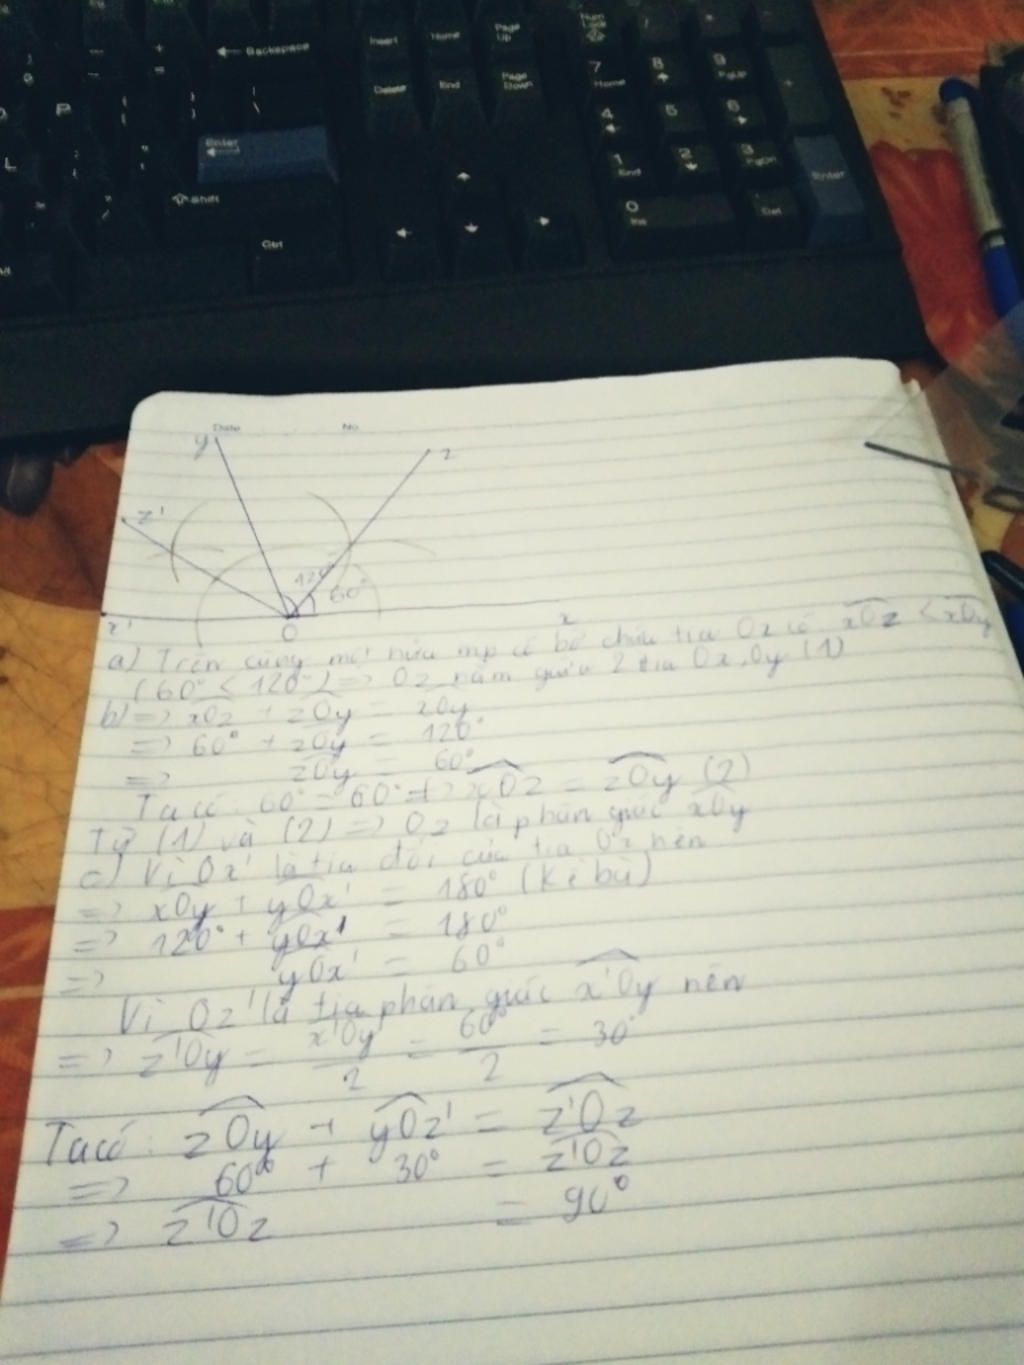 Backspace
Insert
Home
Page Up
Num Lock
Delete
End
Page Down
7 Home
8
9 PgUp
P
Enter
4
5
6
L
Shift
1 End
2
3 PgDn
Enter
Ctrl
0 Ins
Del
Date
No
y
z
z'
120°
60°
x'
O
x
a) Trên cùng một nửa mp có bờ chứa tia Ox có xOz < xOy
(60° < 120°) => Oz nằm giữa 2 tia Ox, Oy (1)
b) => xOz + zOy = xOy
=> 60° + zOy = 120°
=> zOy = 60°
Ta có: 60° = 60° => xOz = zOy (2)
Từ (1) và (2) => Oz là phân giác xOy
c) Vì Ox' là tia đối của tia Ox nên
=> xOy + yOx' = 180° (kề bù)
=> 120° + yOx' = 180°
=> yOx' = 60°
Vì Oz' là tia phân giác x'Oy nên
=> z'Oy = x'Oy / 2 = 60° / 2 = 30°
Ta có: zOy + yOz' = z'Oz
=> 60° + 30° = z'Oz
=> z'Oz = 90°